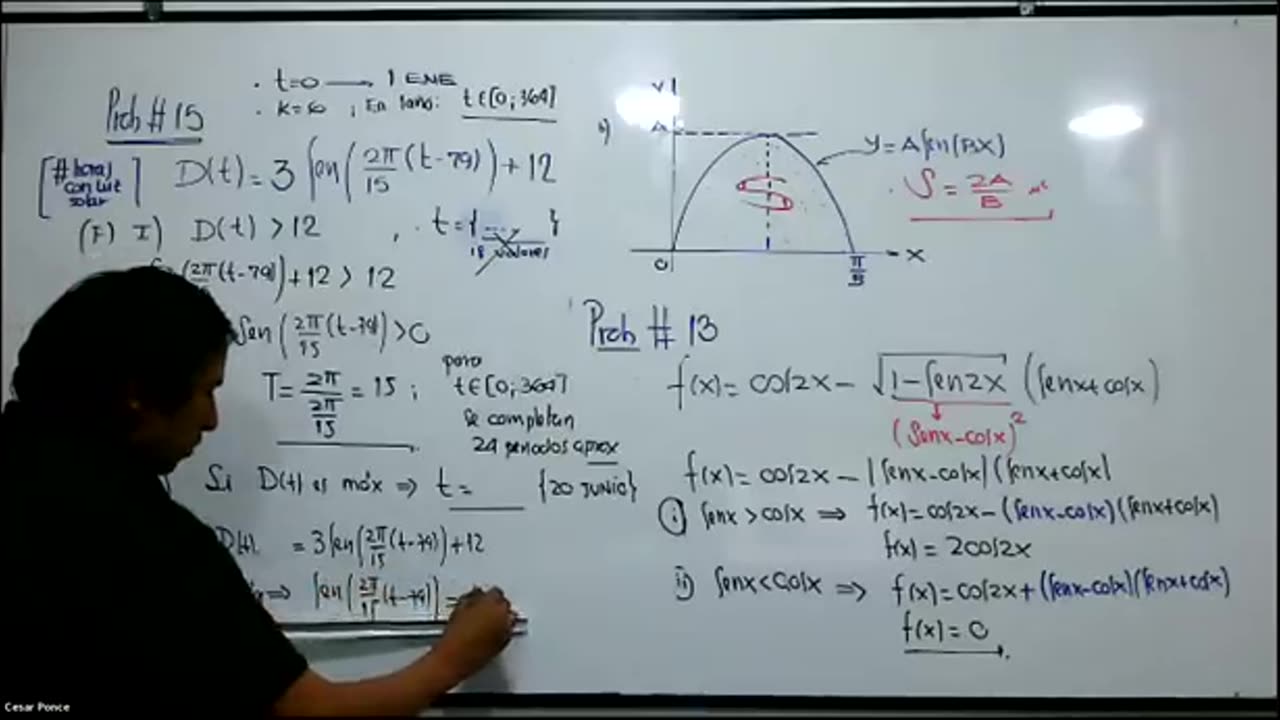 Prob # 15
. t=0 → 1 ENE
. K=80 ; En 1año: t∈[0; 364]
[# horas con luz solar] D(t) = 3 Sen(2π/15 (t-79)) + 12
(F) I) D(t) > 12 , . t = {..., }
18 valores
(2π (t-79)) + 12 > 12
Sen(2π/15 (t-79)) > 0
T = 2π/(2π/15) = 15 ; para t∈[0; 364]
se completan
24 periodos aprox
Si D(t) es máx ⇒ t = {20 JUNIO}
D(t) = 3 Sen(2π/15 (t-79)) + 12
⇒ Sen(2π/15 (t-79)) =
y
A
y = A Sen(BX)
S
. S = 2A/B u²
0
π/B
x
Prob # 13
f(x) = cos2x - √(1 - Sen2x) (Senx + cosx)
(Senx - cosx)²
f(x) = cos2x - |Senx - cosx| (Senx + cosx)
i) Senx > cosx ⇒ f(x) = cos2x - (Senx - cosx)(Senx + cosx)
f(x) = 2cos2x
ii) Senx < Cosx ⇒ f(x) = cos2x + (Senx - cosx)(Senx + cosx)
f(x) = 0
Cesar Ponce